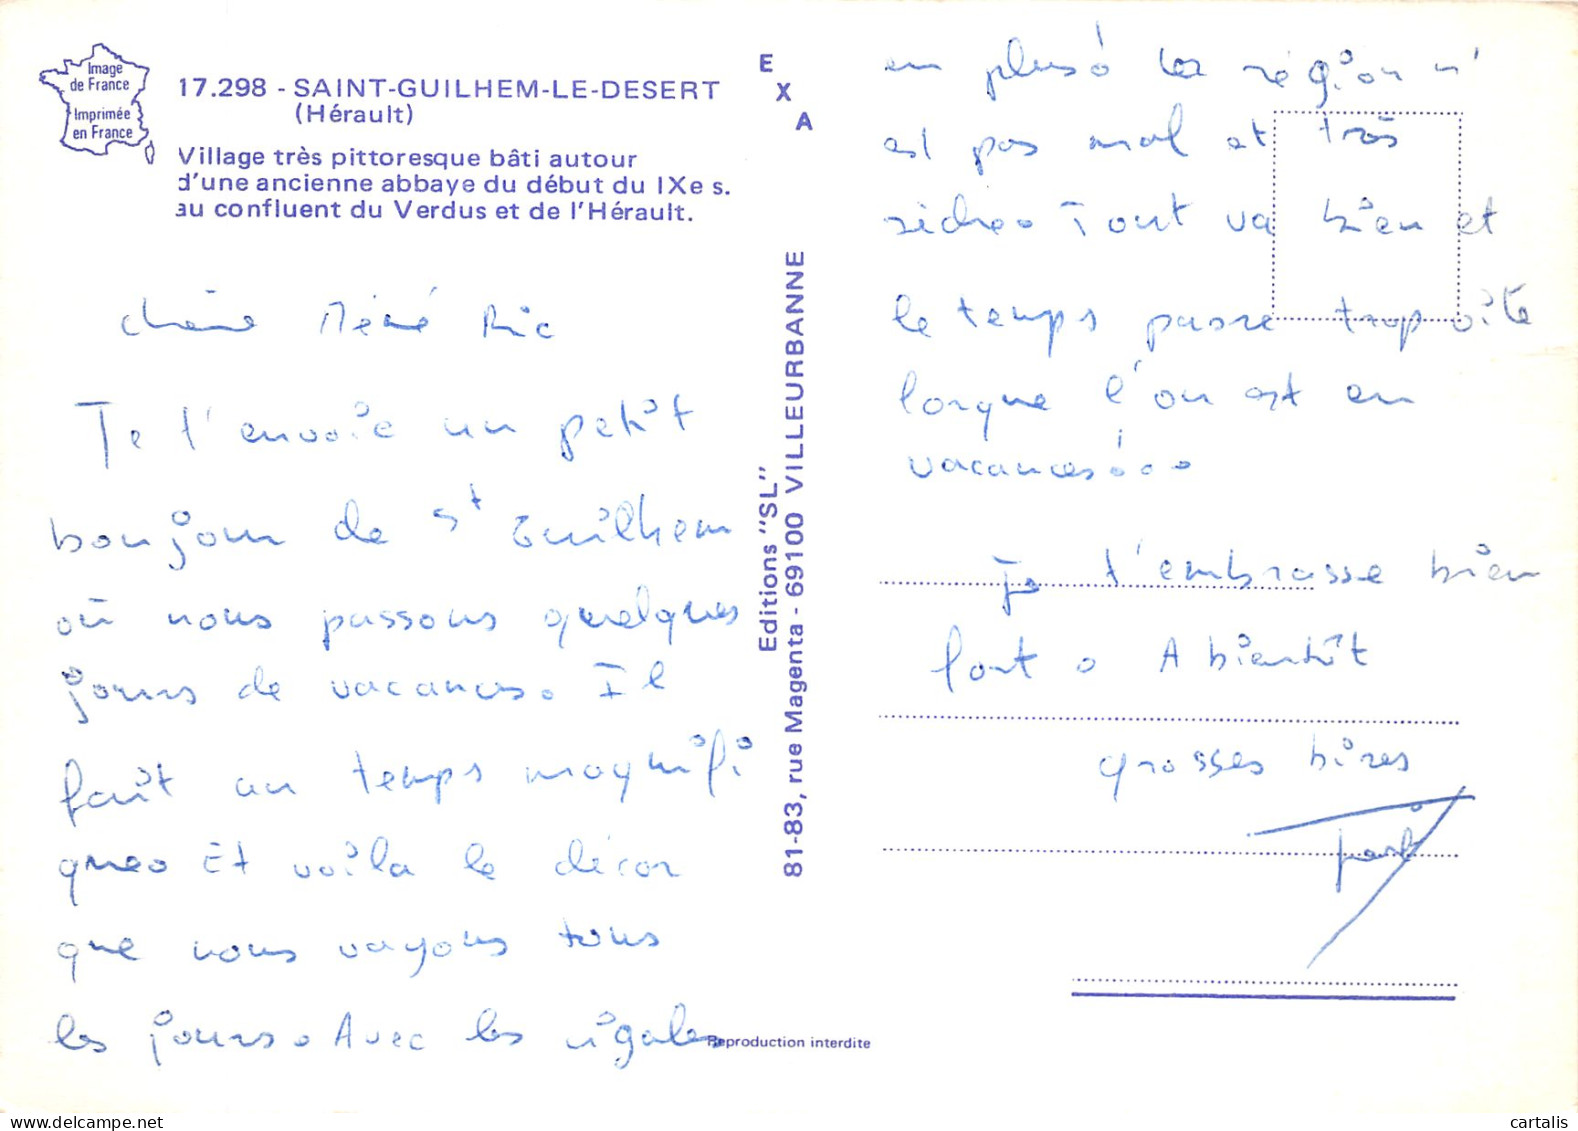 Image
de France
Imprimée
en France
17.298 - SAINT-GUILHEM-LE-DESERT
(Hérault)
Village très pittoresque bâti autour
d'une ancienne abbaye du début du IXe s.
au confluent du Verdus et de l'Hérault.
chère Mémé Ric
Je t'envoie un petit
bonjour de St Guilhem
où nous passons quelques
jours de vacances. Il
fait un temps magnifi
que. Et voila le décor
que nous voyons tous
les jours. Avec les cigales
E
X
A
Editions "SL"
81-83, rue Magenta - 69100 VILLEURBANNE
Reproduction interdite
en plus! la région n'
est pas mal et très
riche. Tout va bien et
le temps passe trop vite
lorsque l'on est en
vacances!..
Je t'embrasse bien
fort. A bientôt
grosses bises
cartalis